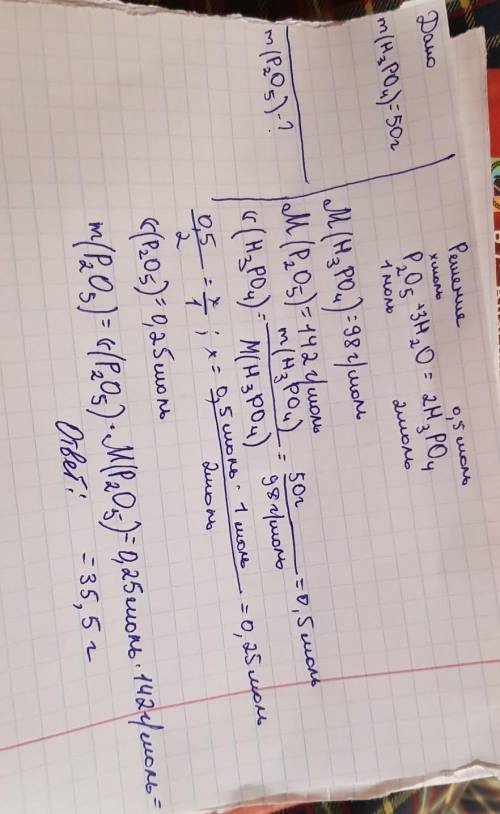 Дано
m(H₃PO₄)=50г
m(P₂O₅)-?
Решение
xмоль 0,5моль
P₂O₅+3H₂O=2H₃PO₄
1моль 2моль
M(H₃PO₄)=98г/моль
M(P₂O₅)=142г/моль
ν(H₃PO₄)=m(H₃PO₄)/M(H₃PO₄)=50г/98г/моль=0,5моль
0,5/2=x/1; x=0,5моль·1моль/2моль=0,25моль
ν(P₂O₅)=0,25моль
m(P₂O₅)=ν(P₂O₅)·M(P₂O₅)=0,25моль·142г/моль=
=35,5г
Ответ: